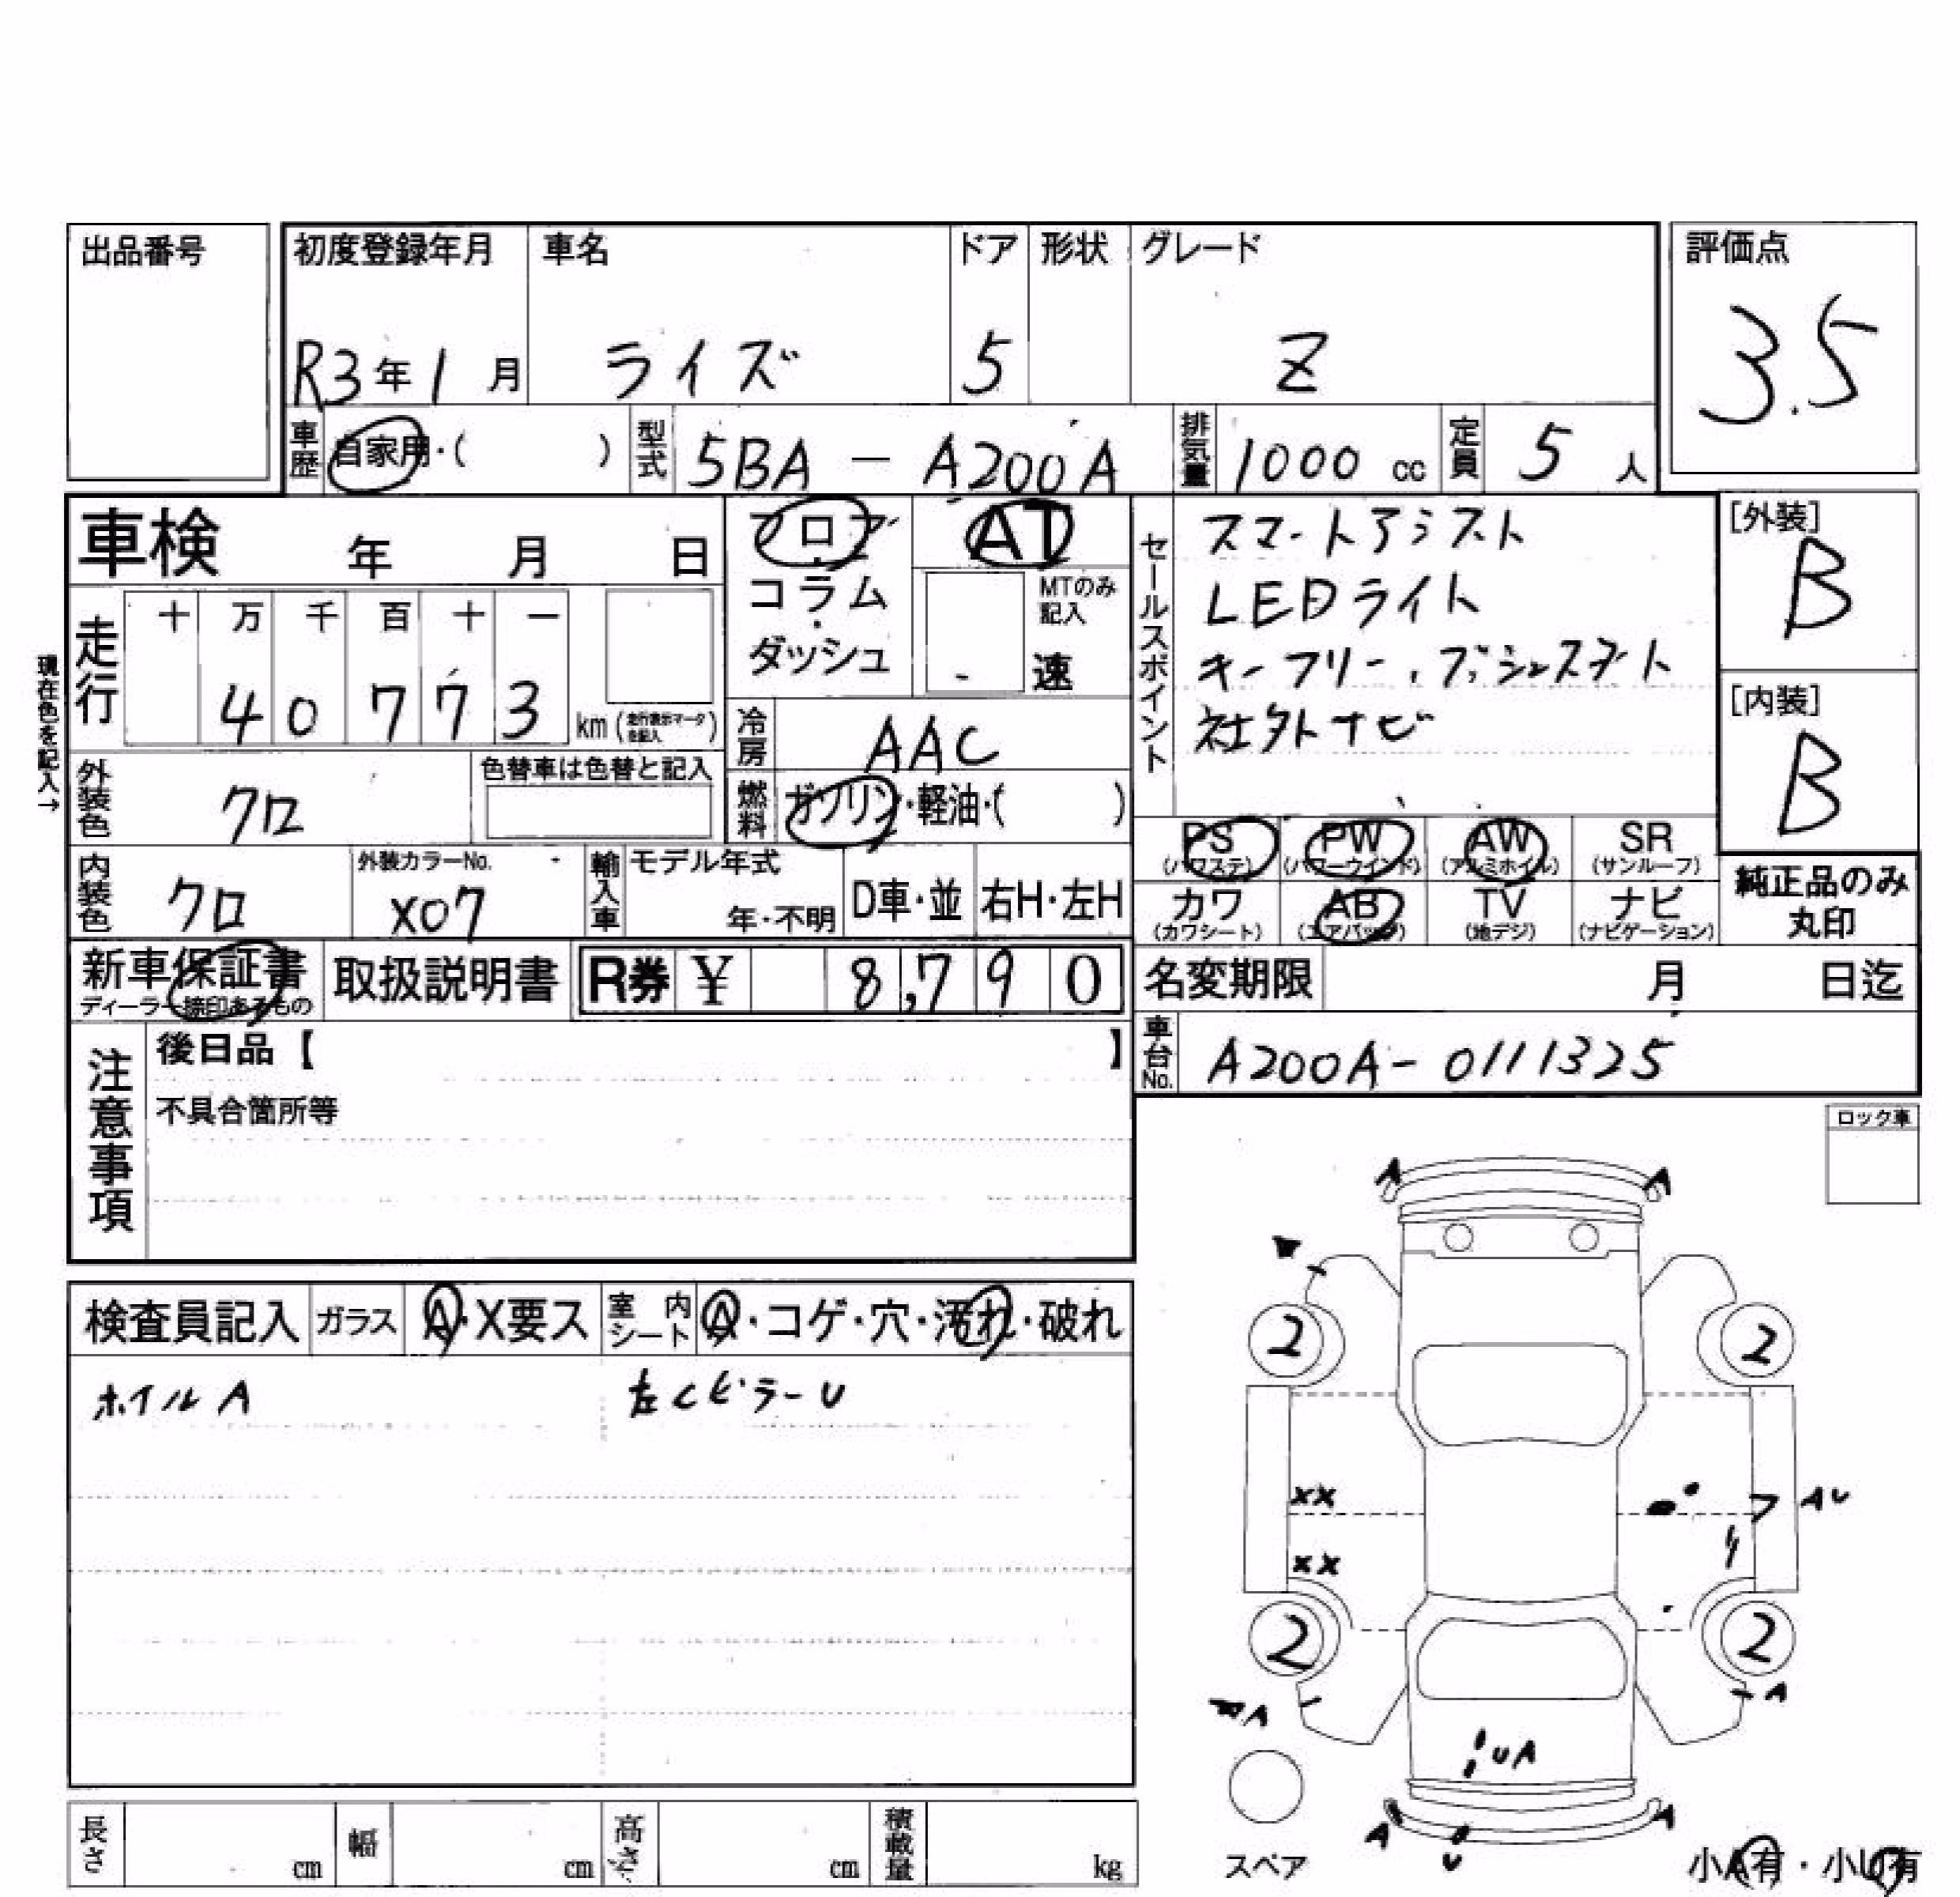 出品番号
初度登録年月 車名 ドア 形状 グレード 評価点
R3年1月 ライズ 5 Z 3.5
車歴 自家用・( ) 型式 5BA - A200A 排気量 1000 cc 定員 5 人
車検 年 月 日
フロア AT
コラム MTのみ記入
ダッシュ 速
セールスポイント
スマートアシスト
LEDライト
キーフリー、プッシュスタート
社外ナビ
[外装]
B
[内装]
B
現在色を記入→
走行 十 万 千 百 十 一
4 0 7 7 3 km (走行表示マークを記入)
冷房 AAC
外装色 クロ 色替車は色替と記入
燃料 ガソリン・軽油・( )
PS (パワステ) PW (パワーウインド) AW (アルミホイル) SR (サンルーフ)
カワ (カワシート) AB (エアバッグ) TV (地デジ) ナビ (ナビゲーション)
純正品のみ
丸印
内装色 クロ 外装カラーNo. X07 輸入車 モデル年式 年・不明 D車・並 右H・左H
新車保証書 取扱説明書 R券 ¥ 8,790 名変期限 月 日迄
ディーラー捺印あるもの
車台No. A200A-0111325
注意事項
後日品【 】
不具合箇所等
ロック車
検査員記入 ガラス A・X要ス 室内シート A・コゲ・穴・汚れ・破れ
ホイルA 左CピラーU
A A
2 2
XX AU
XX
2 2
A A
UA
A A
U
スペア
小A有・小U有
長さ cm 幅 cm 高さ cm 積載量 kg